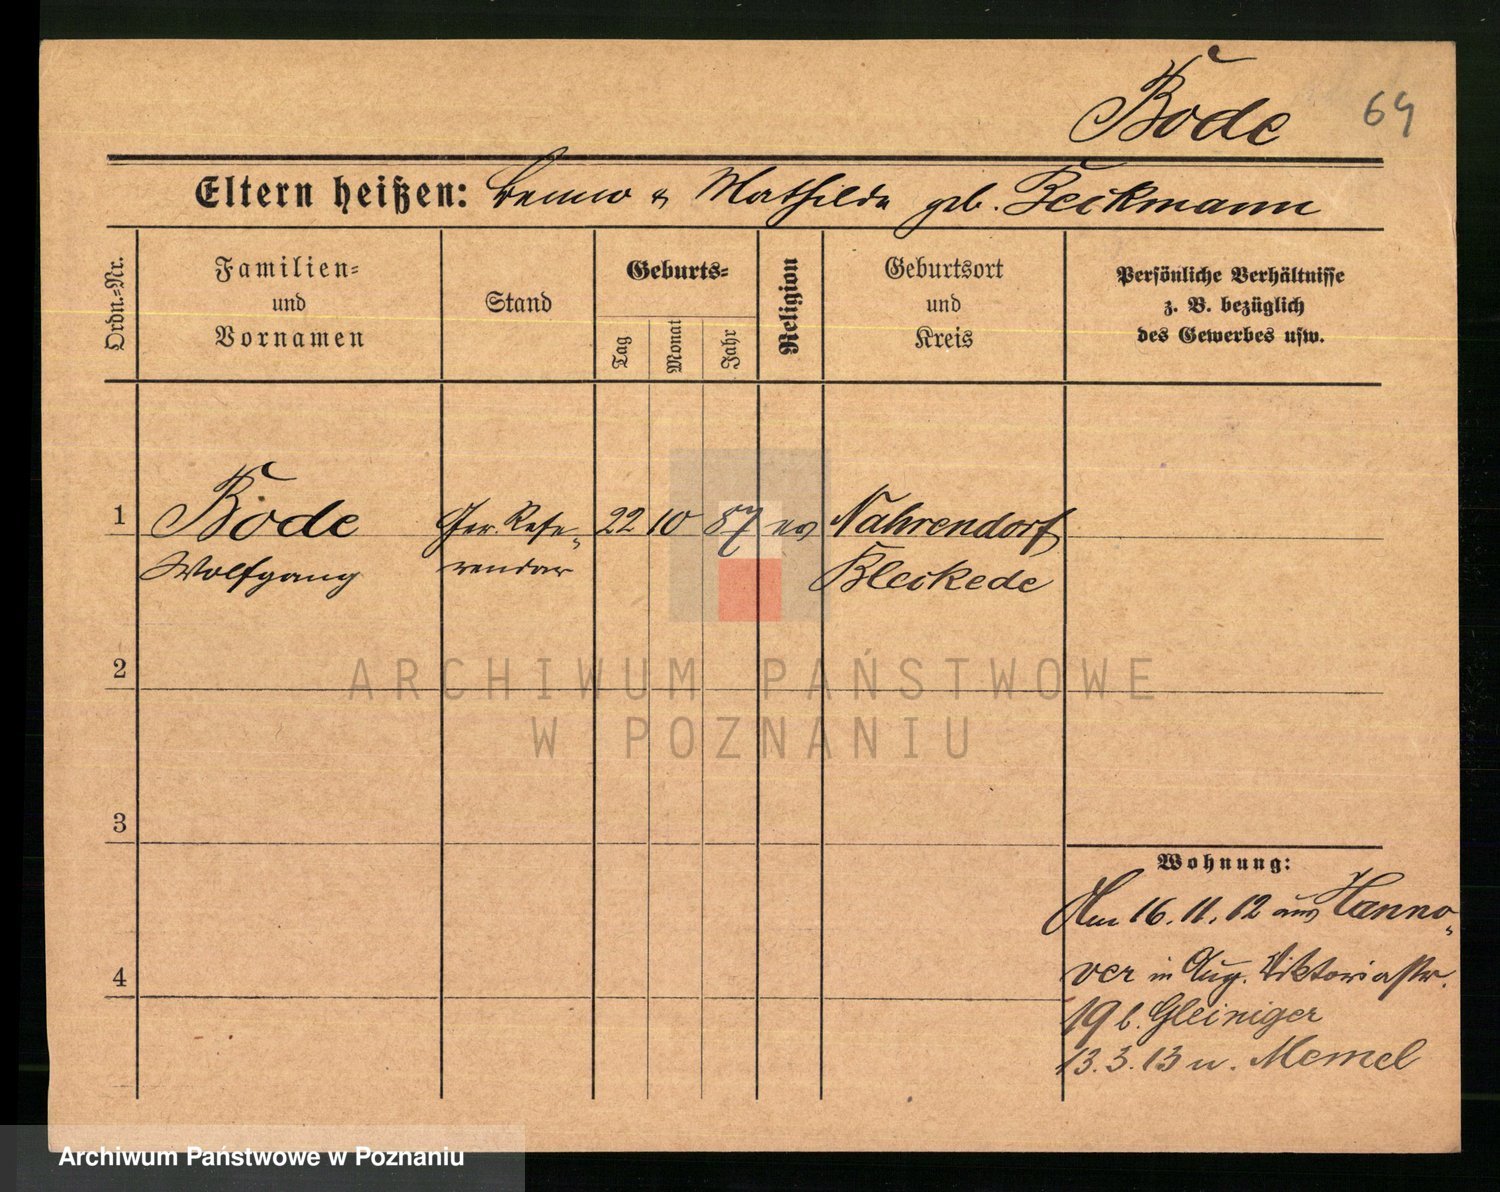 Bode 64
Eltern heißen: Benno & Mathilde geb. Beckmann
Ordn.-Nr.
Familien-
und
Vornamen
Stand
Geburts-
Tag
Monat
Jahr
Religion
Geburtsort
und
Kreis
Persönliche Verhältnisse
z. B. bezüglich
des Gewerbes usw.
1 Bode Ger. Refe- 22 10 87 ev Nahrendorf
Wolfgang rendar Bleckede
2
3
4
Wohnung:
Am 16.11.12 aus Hanno-
ver in Aug. Viktoriastr.
19 b. Gleiniger
13.3.13 n. Memel
ARCHIWUM PAŃSTWOWE
W POZNANIU
Archiwum Państwowe w Poznaniu